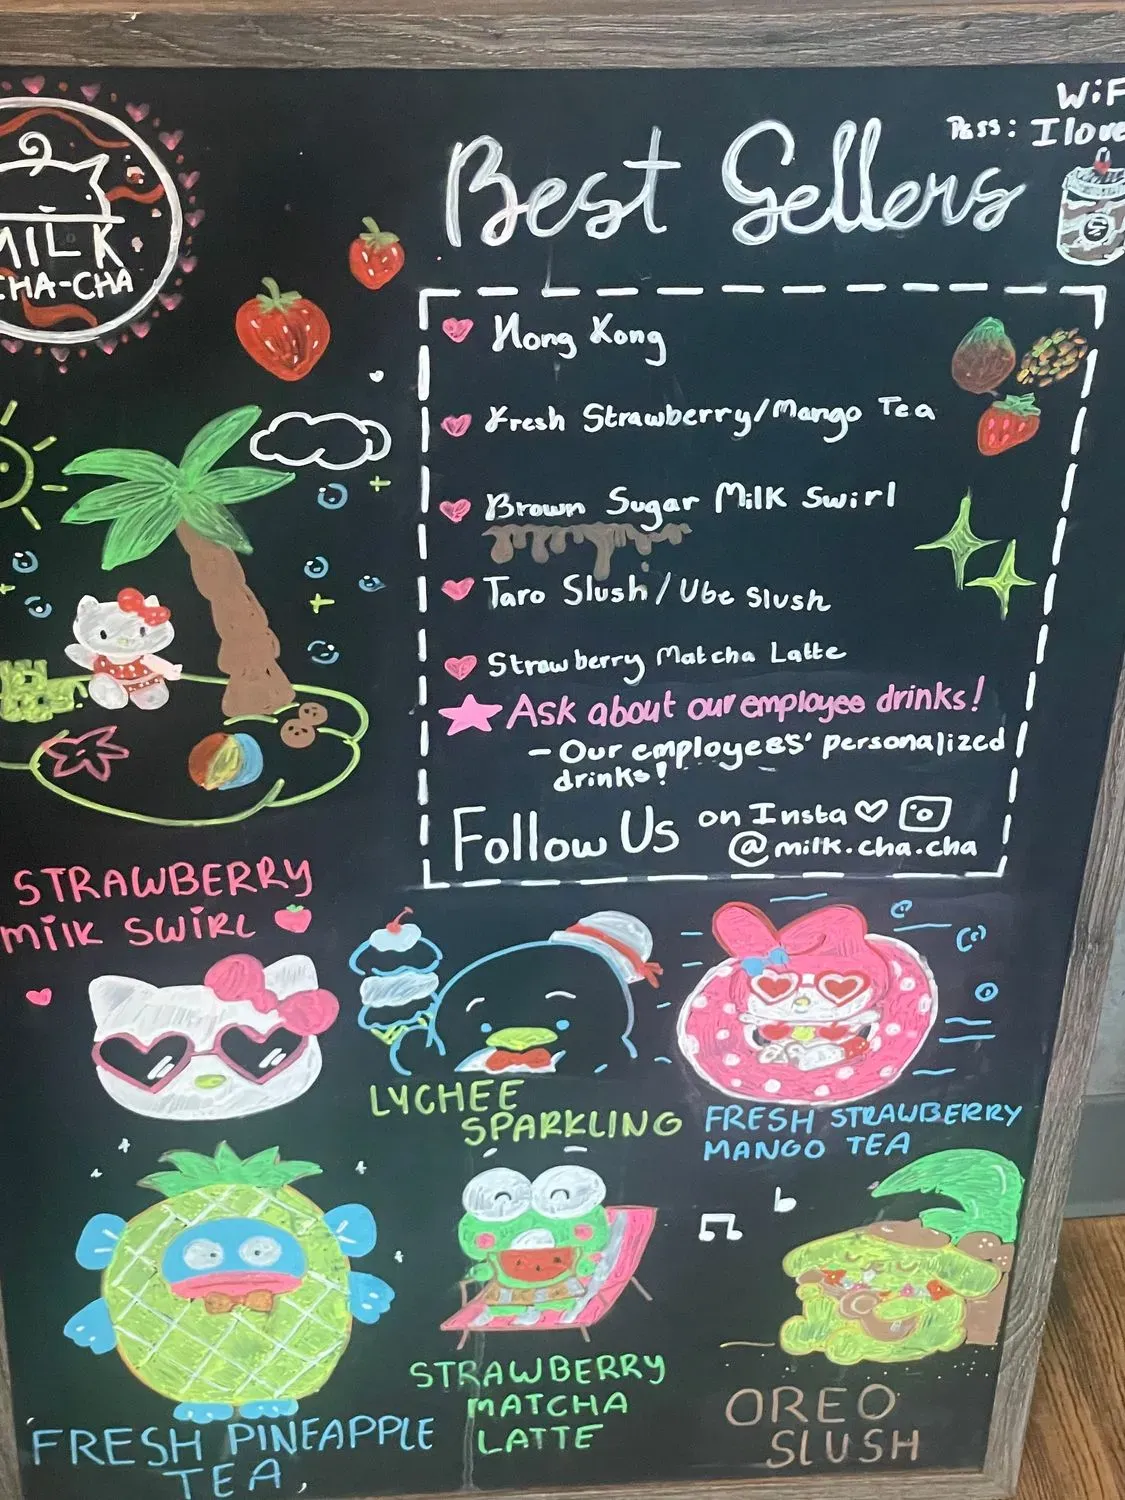 MILK
CHA-CHA
Best Sellers
WiF
Pass: Ilove
Hong Kong
Fresh Strawberry/Mango Tea
Brown Sugar Milk Swirl
Taro Slush/Ube Slush
Strawberry Matcha Latte
Ask about our employee drinks!
- Our employees' personalized
drinks!
Follow Us on Insta
@milk.cha.cha
STRAWBERRY
MILK SWIRL
LYCHEE
SPARKLING
FRESH STRAWBERRY
MANGO TEA
FRESH PINEAPPLE
TEA
STRAWBERRY
MATCHA
LATTE
OREO
SLUSH